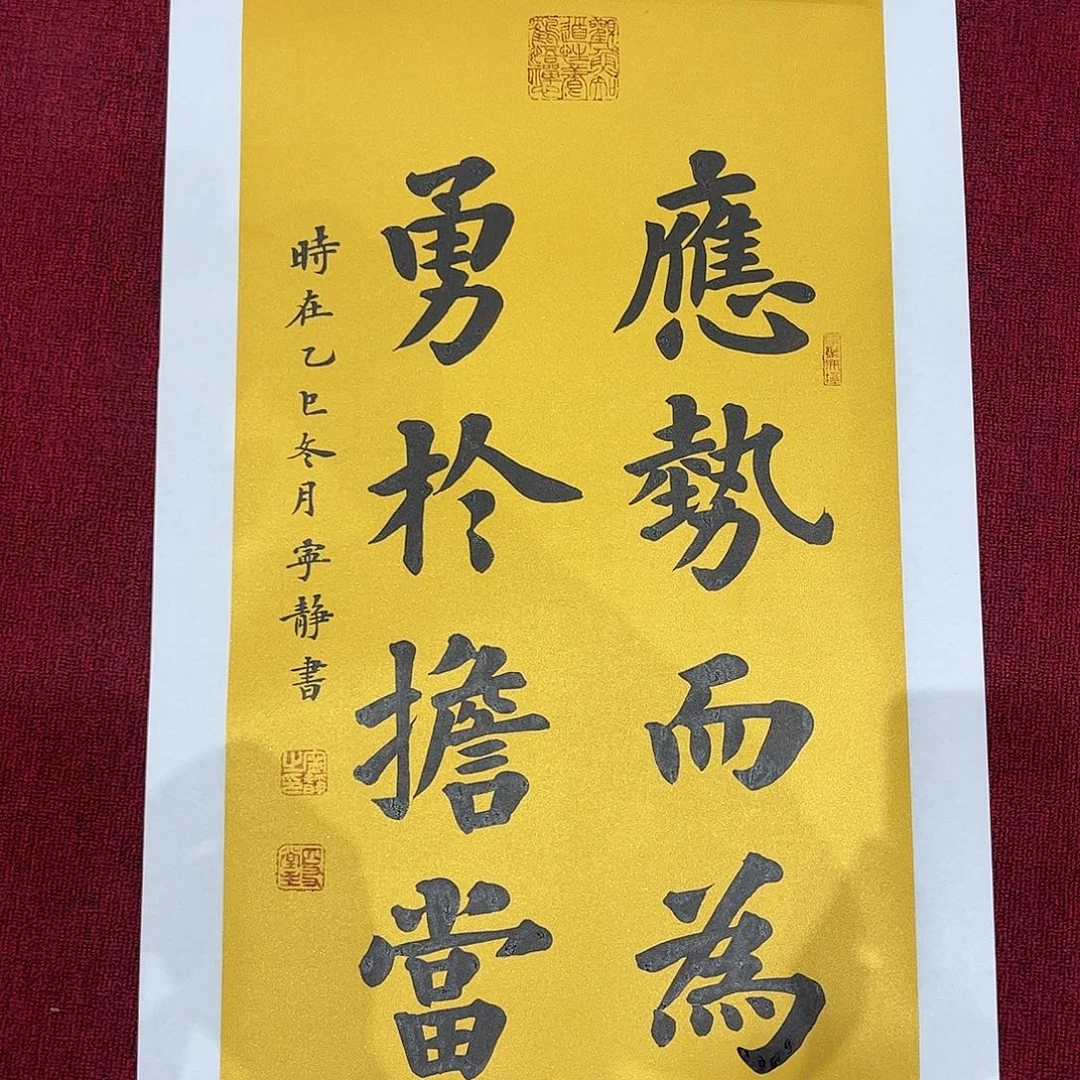 應勢而為
勇於擔當
時在乙巳冬月寧靜書